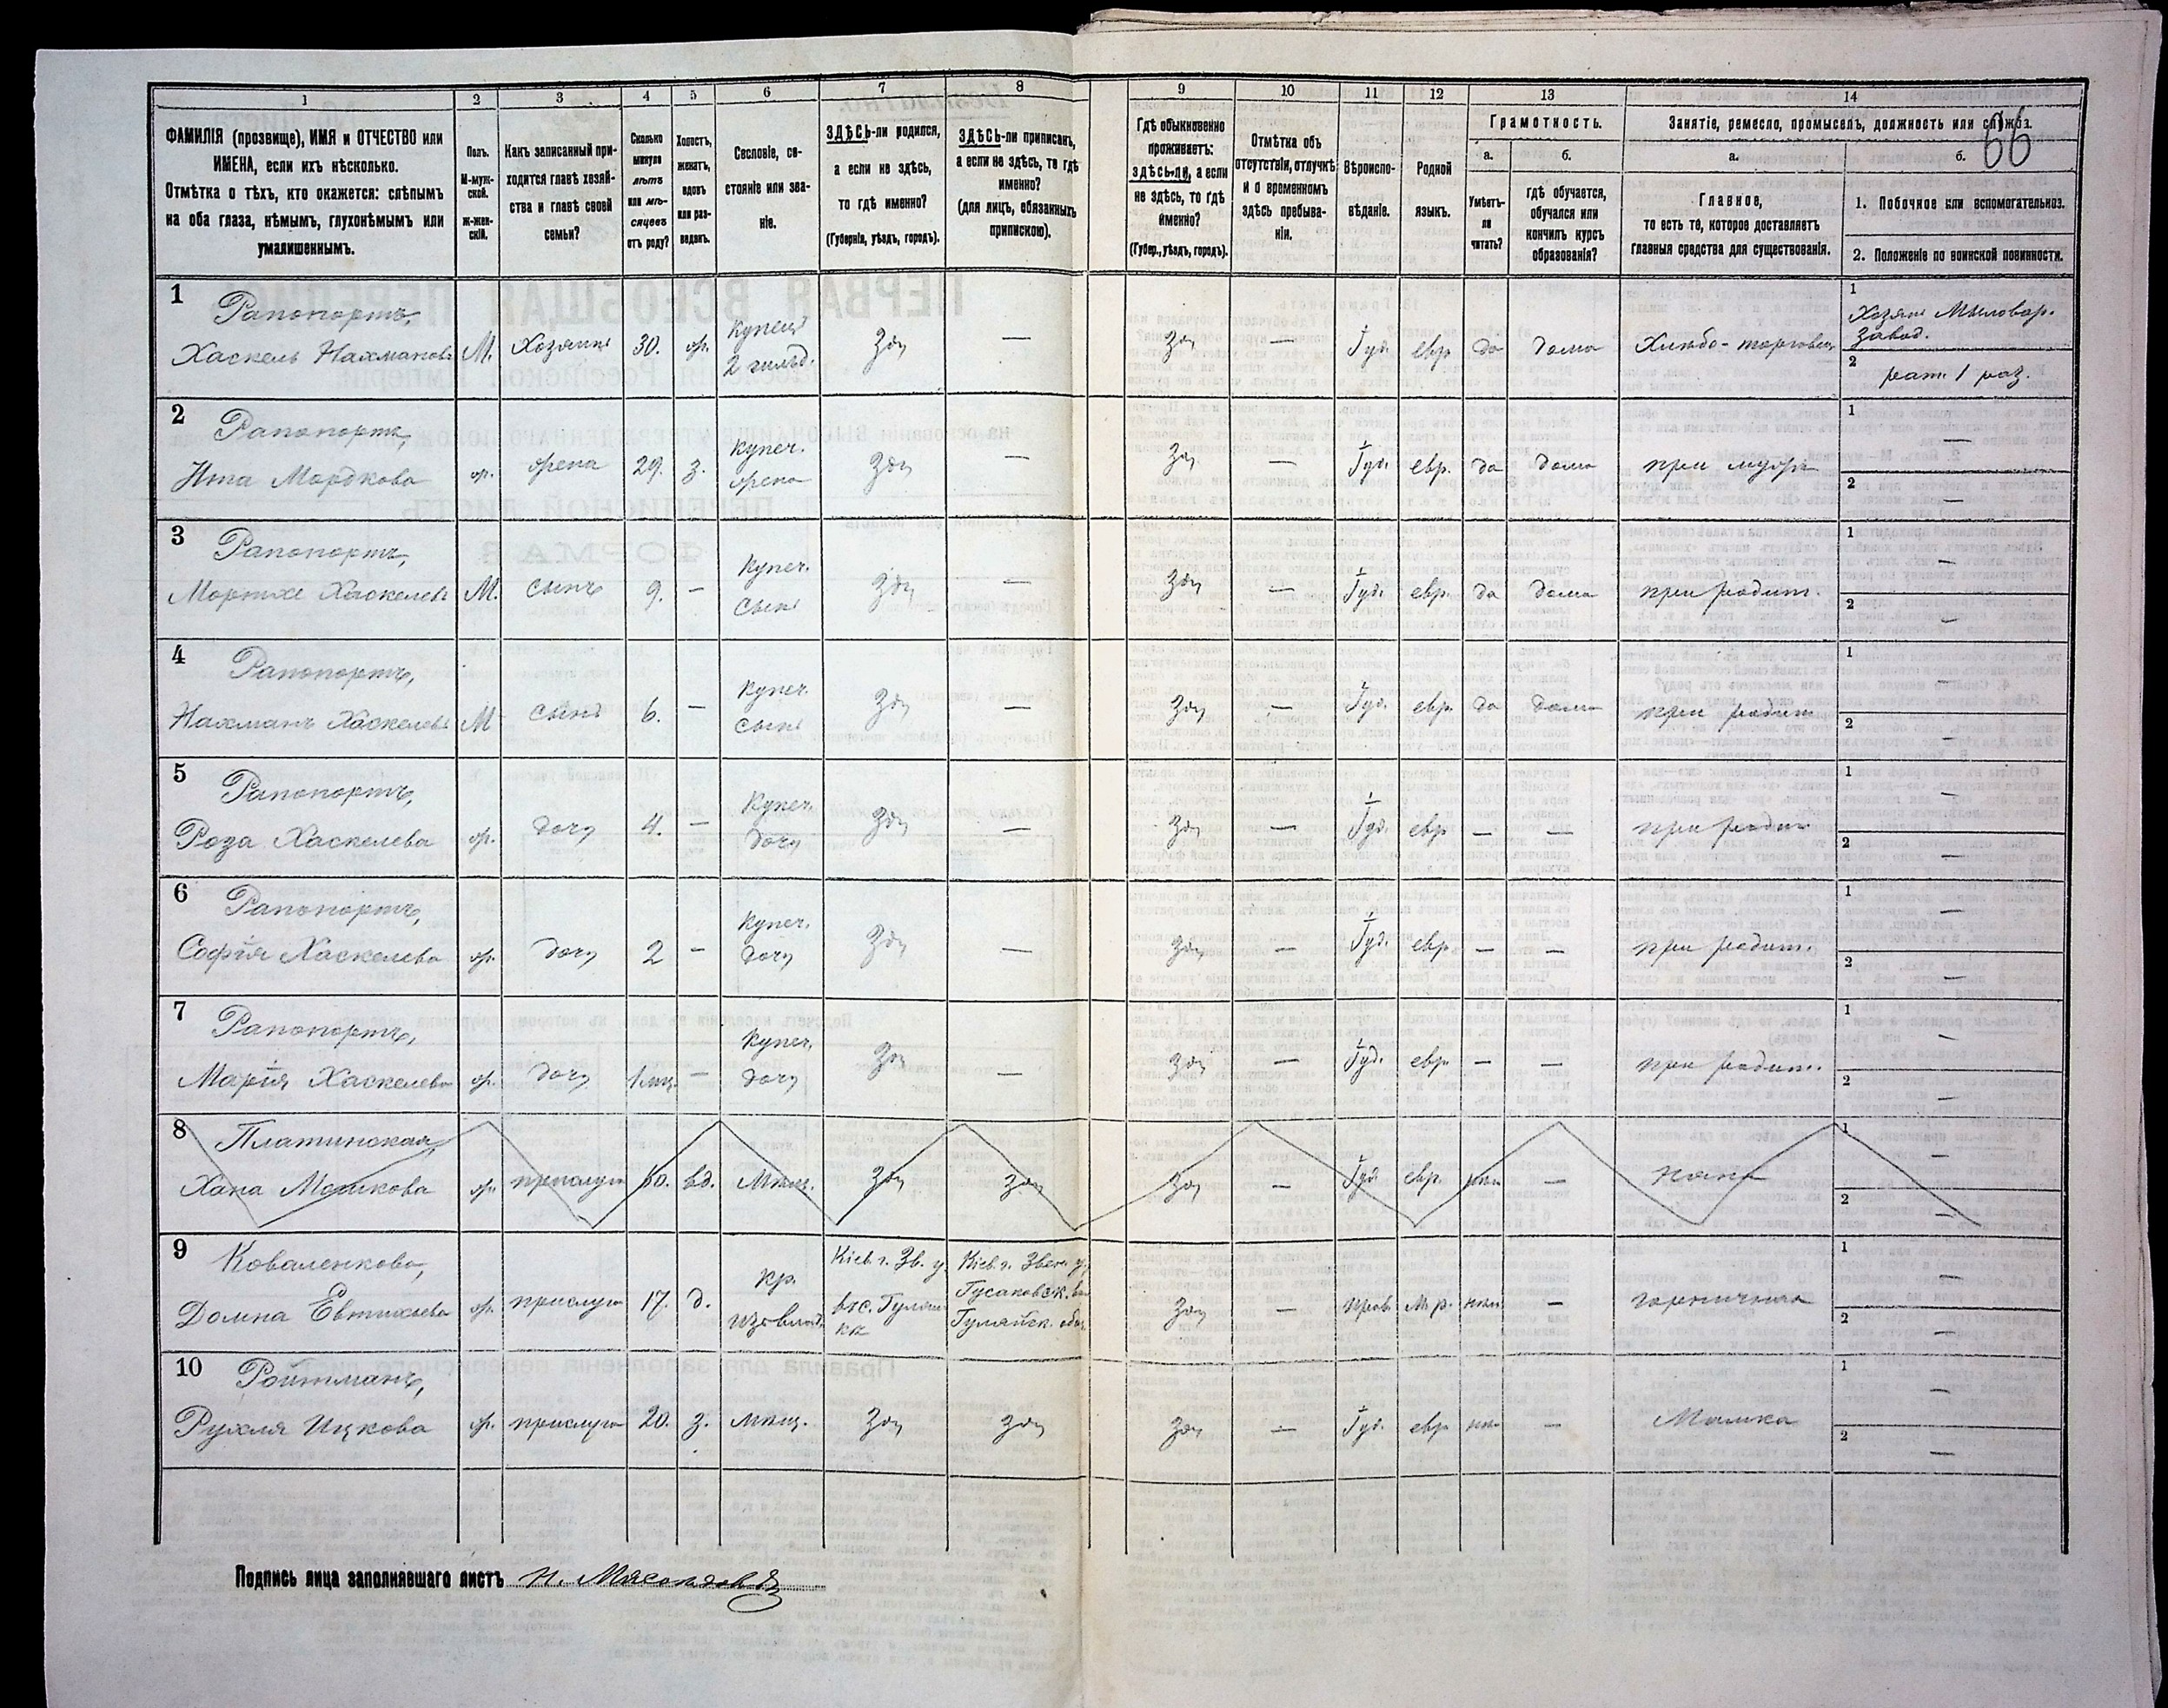 1 2 3 4 5 6 7 8 9 10 11 12 13 14
66
ФАМИЛІЯ (прозвище), ИМЯ и ОТЧЕСТВО или
ИМЕНА, если ихъ нѣсколько.
Отмѣтка о тѣхъ, кто окажется: слѣпымъ
на оба глаза, нѣмымъ, глухонѣмымъ или
умалишеннымъ.
Полъ.
М-муж-
ской.
ж-жен-
скій.
Какъ записанный при-
ходится главѣ хозяй-
ства и главѣ своей
семьи?
Сколько
минуло
лѣтъ
или мѣ-
сяцевъ
отъ роду?
Холостъ,
женатъ,
вдовъ
или раз-
веденъ.
Сословіе, со-
стояніе или зва-
ніе.
ЗДѢСЬ-ли родился,
а если не здѣсь,
то гдѣ именно?
(Губернія, уѣздъ, городъ).
ЗДѢСЬ-ли приписанъ,
а если не здѣсь, то гдѣ
именно?
(для лицъ, обязанныхъ
припискою).
Гдѣ обыкновенно
проживаетъ:
здѣсь-ли, а если
не здѣсь, то гдѣ
именно?
(Губер., уѣздъ, городъ).
Отмѣтка объ
отсутствіи, отлучкѣ
и о временномъ
здѣсь пребыва-
ніи.
Вѣроиспо-
вѣданіе.
Родной
языкъ.
Грамотность.
а.
б.
Умѣетъ-
ли
читать?
гдѣ обучается,
обучался или
кончилъ курсъ
образованія?
Занятіе, ремесло, промыселъ, должность или служба.
а.
б.
Главное,
то есть то, которое доставляетъ
главныя средства для существованія.
1. Побочное или вспомогательное.
2. Положеніе по воинской повинности.
1 Рапопортъ, Купецъ 1 Хозяинъ Мыловар.
Хаскель Нахмановъ М. Хозяинъ 30. ж. 2 гильд. Здѣ — Здѣ — Іуд. евр да дома Хлѣбо-торговецъ завод.
2 рат. 1 раз.
2 Рапопортъ, Купеч. 1 —
Ита Мордкова ж. жена 29. з. жена Здѣ — Здѣ — Іуд. евр. да дома при мужѣ 2 —
3 Рапопортъ, Купеч. 1 —
Мортхе Хаскелевъ М. сынъ 9. — сынъ Здѣ — Здѣ — Іуд. евр. да дома при родит. 2 —
4 Рапопортъ, Купеч. 1 —
Нахманъ Хаскелевъ М сынъ 6. — сынъ Здѣ — Здѣ — Іуд. евр. да дома при родит 2 —
5 Рапопортъ, Купеч. 1 —
Роза Хаскелева ж. дочь 4. — дочь Здѣ — Здѣ — Іуд. евр — — при родит 2 —
6 Рапопортъ, Купеч. 1 —
Софія Хаскелева ж. дочь 2 — дочь Здѣ — Здѣ — Іуд. евр. — — при родит. 2 —
7 Рапопортъ, Купеч. 1 —
Марія Хаскелева ж. дочь 1 мѣц. — дочь Здѣ — Здѣ — Іуд. евр. — — при родит. 2 —
8 Платинская, 1 —
Хана Мошкова ж. прислуга вд. Мѣщ. Здѣ Здѣ Здѣ — Іуд евр. нѣт — няня 2 —
9 Коваленкова, кр. Кіев. г. Зв. у. Кіев. г. Звен. у. 1 —
Домна Евтихіева ж. прислуга 17. д. Гусаковск. Здѣ — прав. М. р. нѣт — горничная
Гуляйск. 2 —
10 Ройтманъ, 1 —
Рухля Ицкова ж. прислуга 20. з. мѣщ. Здѣ Здѣ Здѣ — Іуд. евр нѣт — Мамка 2 —
Подпись лица заполнявшаго листъ Н. Мясоѣдовъ